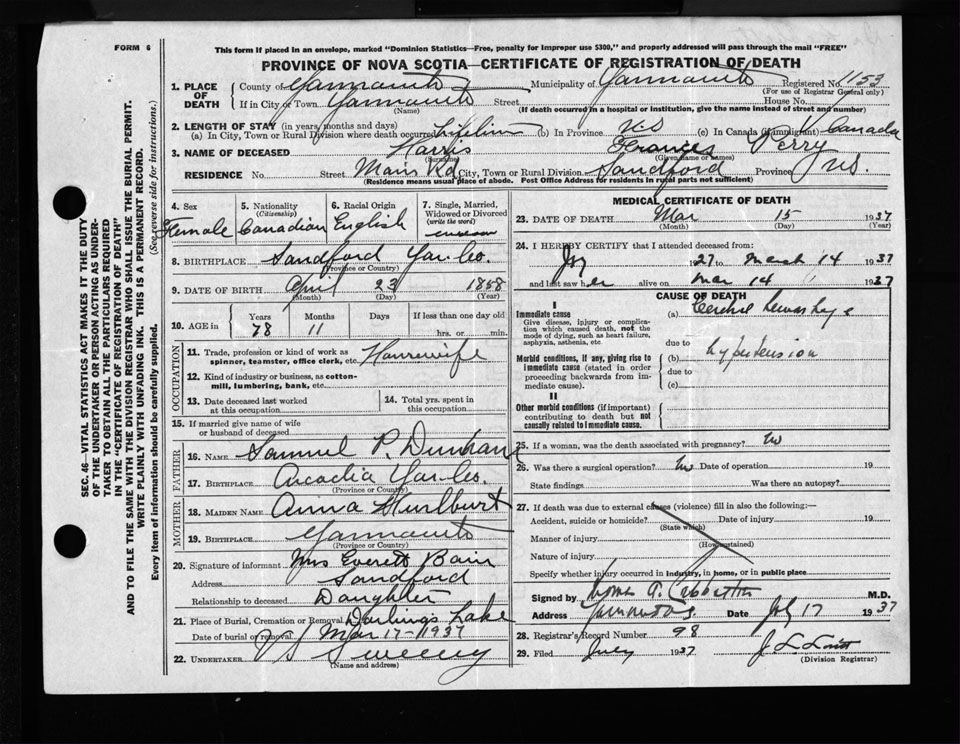 FORM 6
This form if placed in an envelope, marked "Dominion Statistics—Free, penalty for improper use $300," and properly addressed will pass through the mail "FREE"
PROVINCE OF NOVA SCOTIA—CERTIFICATE OF REGISTRATION OF DEATH
SEC. 46—VITAL STATISTICS ACT MAKES IT THE DUTY
OF THE UNDERTAKER OR PERSON ACTING AS UNDER-
TAKER TO OBTAIN ALL THE PARTICULARS REQUIRED
IN THE "CERTIFICATE OF REGISTRATION OF DEATH"
AND TO FILE THE SAME WITH THE DIVISION REGISTRAR WHO SHALL ISSUE THE BURIAL PERMIT.
WRITE PLAINLY WITH UNFADING INK. THIS IS A PERMANENT RECORD.
Every item of information should be carefully supplied. (See reverse side for instructions.)
1. PLACE OF DEATH
County of Yarmouth Municipality of Yarmouth Registered No. 1153
(For use of Registrar General only)
If in City or Town Yarmouth Street House No.
(Name) (If death occurred in a hospital or institution, give the name instead of street and number)
2. LENGTH OF STAY (in years, months and days)
(a) In City, Town or Rural Division where death occurred Lifetime (b) In Province N.S (c) In Canada (if immigrant) Canada
3. NAME OF DECEASED Harris Frances Perry
(Surname) (Given name or names)
RESIDENCE No. Street Main Rd City, Town or Rural Division Sandford Province N.S.
(Residence means usual place of abode. Post Office Address for residents in rural parts not sufficient)
4. Sex Female
5. Nationality (Citizenship) Canadian
6. Racial Origin English
7. Single, Married, Widowed or Divorced (write the word)
8. BIRTHPLACE Sandford Yar. Co.
(Province or Country)
9. DATE OF BIRTH April 23 1858
(Month) (Day) (Year)
10. AGE in Years Months Days If less than one day old
78 11 hrs. or min.
OCCUPATION
11. Trade, profession or kind of work as spinner, teamster, office clerk, etc. Housewife
12. Kind of industry or business, as cotton-mill, lumbering, bank, etc.
13. Date deceased last worked at this occupation
14. Total yrs. spent in this occupation
15. If married give name of wife or husband of deceased
FATHER
16. NAME Samuel P. Durkee
17. BIRTHPLACE Arcadia Yar. Co.
(Province or Country)
MOTHER
18. MAIDEN NAME Anna Hurlburt
19. BIRTHPLACE Yarmouth
(Province or Country)
20. Signature of informant Mrs Everett Bain
Address Sandford
Relationship to deceased Daughter
21. Place of Burial, Cremation or Removal Darlings Lake
Date of burial or removal Mar 17-1937
22. UNDERTAKER Sweeny
(Name and address)
MEDICAL CERTIFICATE OF DEATH
23. DATE OF DEATH Mar 15 1937
(Month) (Day) (Year)
24. I HEREBY CERTIFY that I attended deceased from:
1927 to March 14 1937
and last saw her alive on Mar 14 1937
CAUSE OF DEATH
I
Immediate cause
Give disease, injury or complication which caused death, not the mode of dying, such as heart failure, asphyxia, asthenia, etc.
(a)
due to
Morbid conditions, if any, giving rise to immediate cause (stated in order proceeding backwards from immediate cause).
(b) hypertension
due to
(c)
II
Other morbid conditions (if important) contributing to death but not causally related to immediate cause.
25. If a woman, was the death associated with pregnancy? No
26. Was there a surgical operation? No Date of operation 19
State findings Was there an autopsy?
27. If death was due to external causes (violence) fill in also the following:—
Accident, suicide or homicide? Date of injury 19
(State which)
Manner of injury
(How sustained)
Nature of injury
Specify whether injury occurred in industry, in home, or in public place
Signed by M.D.
Address Yarmouth N.S. Date July 17 1937
28. Registrar's Record Number 98
29. Filed July 1937
(Division Registrar)